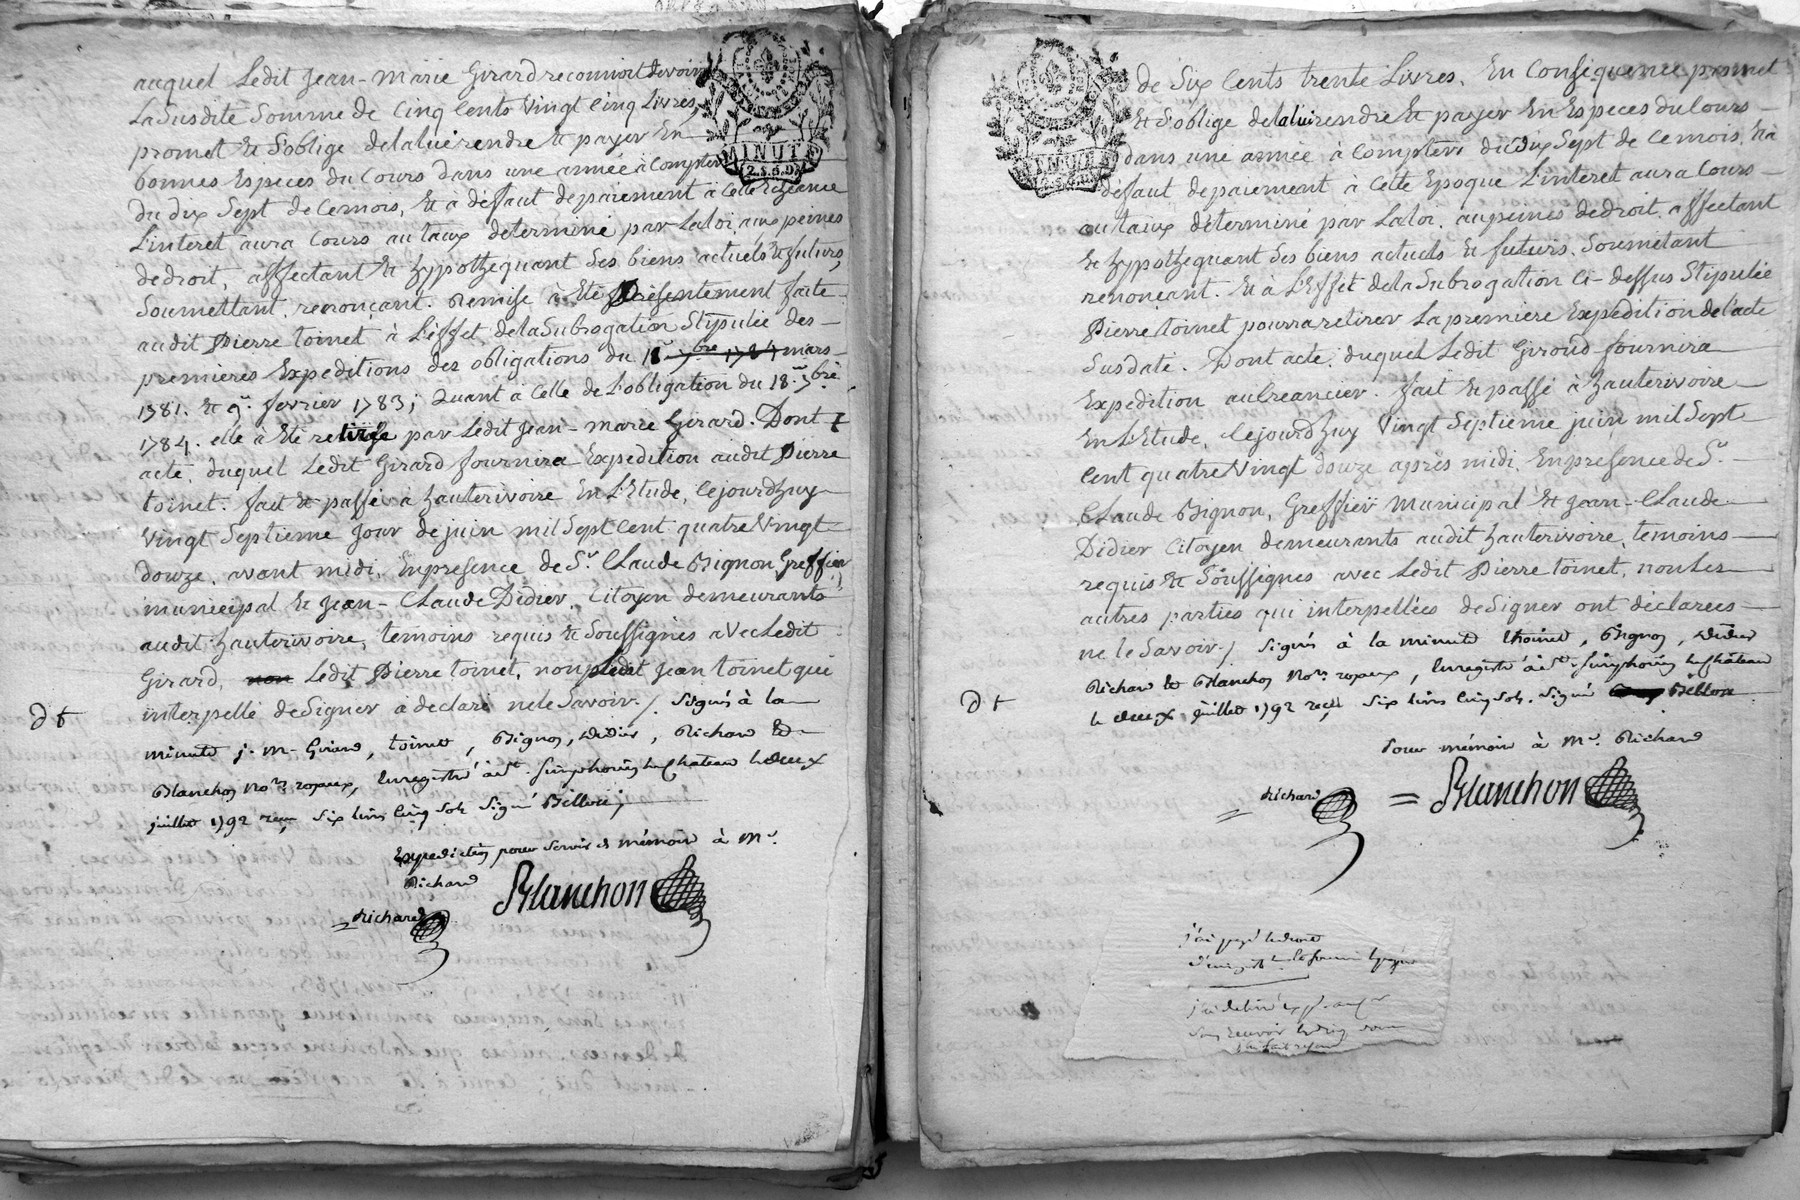 auquel Ledit Jean-Marie Girard reconnoit devoir
La Susdite Somme de Cinq Cents Vingt Cinq Livres,
promet & S'oblige de la lui rendre & payer En
bonnes Especes du Cours dans une année à Compter
du dix Sept de Ce mois, & à déffaut de paiement à Cette
L'interet aura Cours au taux déterminé par La Loi, aux peines
de droit, affectant & hypothequant Ses biens actuels & futurs,
Soumettant, renonçant. Remise à Eté Présentement faite
audit Pierre toinet à L'effet de la Subrogation Stipulée des
premieres Expeditions des obligations du 18 7bre 1784 mars
1781. & 9. fevrier 1783; Quant à Celle de L'obligation du 18. 7bre
1784. elle a Eté retirée par Ledit Jean-Marie Girard. Dont
acte, duquel Ledit Girard fournira Expedition audit Pierre
toinet. fait & passé à hauterivoire En L'Etude, Cejourdhuy
Vingt Septieme Jour de juin mil Sept Cent quatre Vingt
douze, avant midi, En presence de Sr. Claude Bignon Greffier
municipal & Jean-Claude Didier, Citoyen demeurants
audit hauterivoire, temoins requis & Soussignés avec Ledit
Girard, non Ledit Pierre toinet, non Ledit Jean toinet qui
interpellé de Signer a déclaré ne le Savoir./ Signés à la
minute J. M. Girard, toinet, Bignon, Didier, Richard &
Blanchon Nores. royaux, Enregistré à St. Simphorien le Château le deux
juillet 1792 reçu Six livres Cinq Sols. Signé Billou;
Expedition pour Servir de mémoire à Mr.
Richard
Blanchon
Richard
MINUTE
de Six Cents trente Livres. En Conséquence promet
& S'oblige de la lui rendre & payer En Especes du Cours
dans une année à Compter du dix Sept de Ce mois. & à
déffaut de paiement à Cette Epoque L'interet aura Cours
au taux déterminé par La Loi, au peines de droit, affectant
& hypothéquant Ses biens actuels & futurs. Soumétant
renonçant. & à L'Effet de la Subrogation Ci-dessus Stipulée
Pierre toinet pourra retirer La premiere Expedition de l'acte
Susdaté. Dont acte, duquel Ledit Giroud fournira
Expedition au Creancier. fait & passé à hauterivoire
En L'Etude, Cejourdhuy Vingt Septieme juin mil Sept
Cent quatre Vingt douze après midi, En presence de Sr.
Claude Bignon, Greffier Municipal & Jean-Claude
Didier Citoyen demeurants audit hauterivoire, temoins
requis & Soussignés avec Ledit Pierre toinet, non Les
autres parties qui interpellées de Signer ont déclarees
ne le Savoir./ Signés à la minute thoinet, Bignon, Didier
Richard & Blanchon Nores royaux, Enregistré à St. Simphorien le Château
le deux juillet 1792 reçu Six livres Cinq Sols. Signé Billou
Pour mémoire à Mr. Richard
Richard = Blanchon
j'ai payé